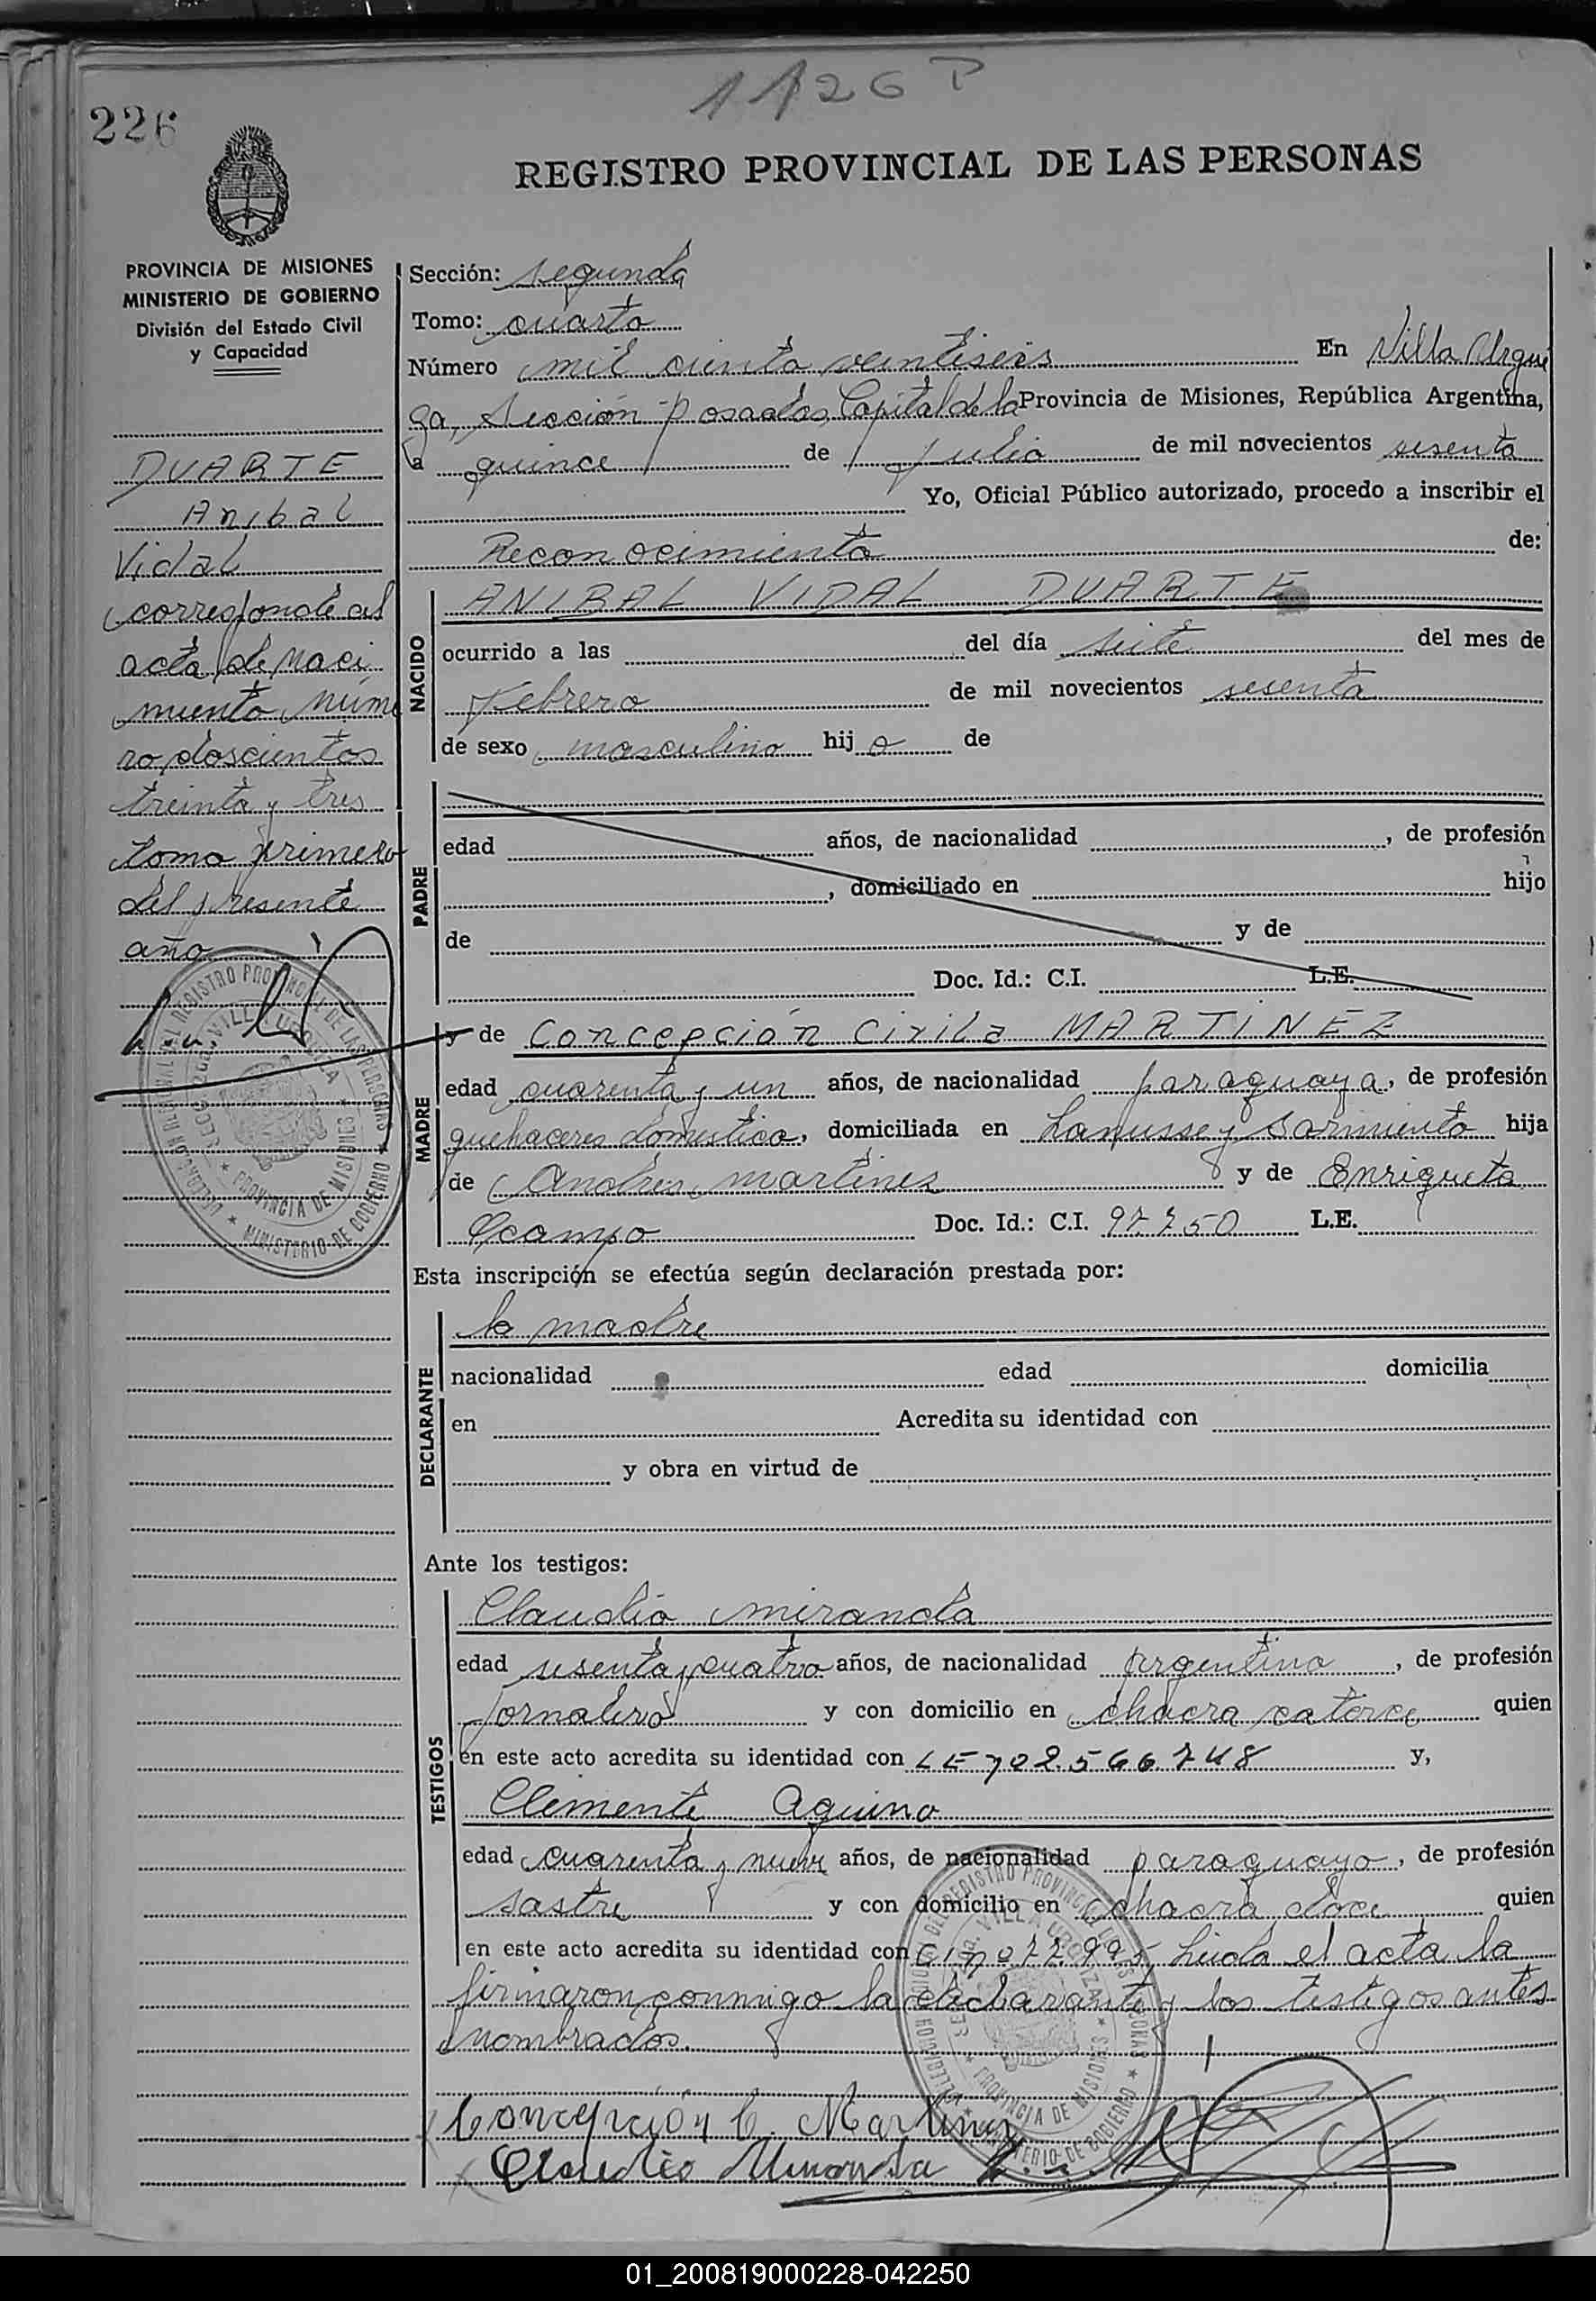 1126 P
226
REGISTRO PROVINCIAL DE LAS PERSONAS
PROVINCIA DE MISIONES
MINISTERIO DE GOBIERNO
División del Estado Civil
y Capacidad
DUARTE
Anibal
Vidal
corresponde al
acta de naci
miento núme
ro doscientos
treinta y tres
tomo primero
del presente
año
Sección: segunda
Tomo: cuarto
Número mil ciento veintiseis En Villa Urqui
za, Sección Posadas, Capital de la Provincia de Misiones, República Argentina,
a quince de Julio de mil novecientos sesenta
Yo, Oficial Público autorizado, procedo a inscribir el
Reconocimiento de:
NACIDO
ANIBAL VIDAL DUARTE
ocurrido a las del día siete del mes de
Febrero de mil novecientos sesenta
de sexo masculino hij o de
PADRE
edad años, de nacionalidad , de profesión
, domiciliado en hijo
de y de
Doc. Id.: C.I. L.E.
MADRE
y de Concepción Cirila MARTINEZ
edad cuarenta y un años, de nacionalidad paraguaya, de profesión
quehaceres domestico, domiciliada en Lanusse y Sarmiento hija
de Andrés Martines y de Enriqueta
Ocampo Doc. Id.: C.I. 97750 L.E.
Esta inscripción se efectúa según declaración prestada por:
DECLARANTE
la madre
nacionalidad edad domicilia
en Acredita su identidad con
y obra en virtud de
Ante los testigos:
TESTIGOS
Claudio Miranda
edad sesenta y cuatro años, de nacionalidad Argentino, de profesión
Jornalero y con domicilio en chacra catorce quien
en este acto acredita su identidad con LE nº 2.566.748 y,
Clemente Aquino
edad cuarenta y nueve años, de nacionalidad paraguayo, de profesión
sastre y con domicilio en Chacra doce quien
en este acto acredita su identidad con CI nº 77.995, Leida el acta la
firmaron conmigo la declarante y los testigos antes
nombrados.
Concepción C. Martinez
Claudio Miranda
01_200819000228-042250